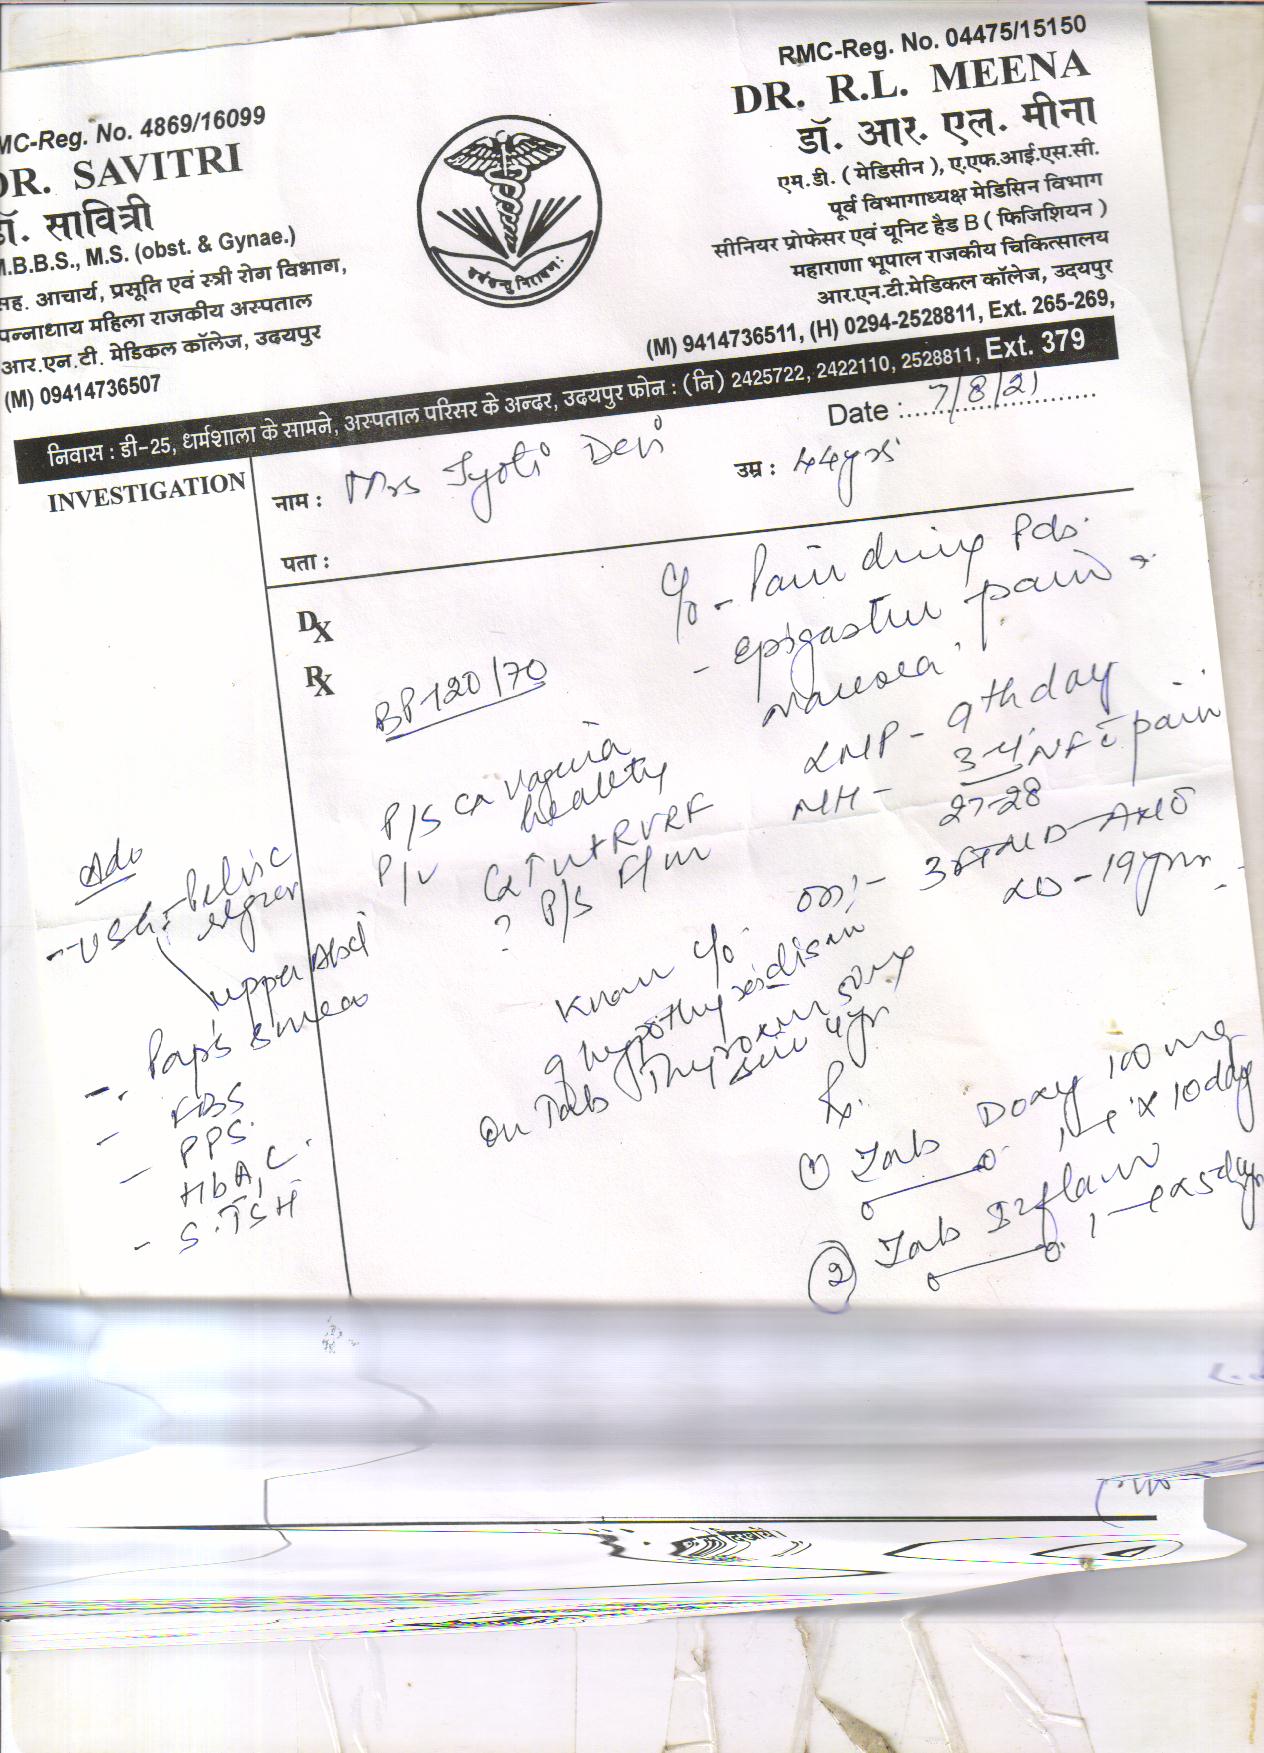 MC-Reg. No. 4869/16099
DR. SAVITRI
डॉ. सावित्री
M.B.B.S., M.S. (obst. & Gynae.)
सह. आचार्य, प्रसूति एवं स्त्री रोग विभाग,
पन्नाधाय महिला राजकीय अस्पताल
आर.एन.टी. मेडिकल कॉलेज, उदयपुर
(M) 09414736507
RMC-Reg. No. 04475/15150
DR. R.L. MEENA
डॉ. आर. एल. मीना
एम.डी. ( मेडिसीन ), ए.एफ.आई.एस.सी.
पूर्व विभागाध्यक्ष मेडिसिन विभाग
सीनियर प्रोफेसर एवं यूनिट हैड B ( फिजिशियन )
महाराणा भूपाल राजकीय चिकित्सालय
आर.एन.टी.मेडिकल कॉलेज, उदयपुर
(M) 9414736511, (H) 0294-2528811, Ext. 265-269,
निवास : डी-25, धर्मशाला के सामने, अस्पताल परिसर के अन्दर, उदयपुर फोन : (नि) 2425722, 2422110, 2528811, Ext. 379
Date : 7/8/21
INVESTIGATION
नाम : Mrs Jyoti Devi
उम्र : 44yrs
पता :
DX
RX
C/o - Pain during Pds.
- epigastric pain
nausea
BP 120/70
LMP - 9th day
MH - 3-4 NF c pain
27-28
P/S Cx vagina
healthy
P/V Cx ↑ Ut RVRF
? P/S F/m
LD - 19yrs
Known C/o
of hypothyroidism
on Tab Thyroxin 50mg
4yr
Adv
- USG - Pelvic
upper Abd
- Pap's smear
- FBS
- PPS
HbA1C
- S.TSH
Rx
① Tab Doxy 100mg
1-1 x 10day
② Tab
1-1 x 5days